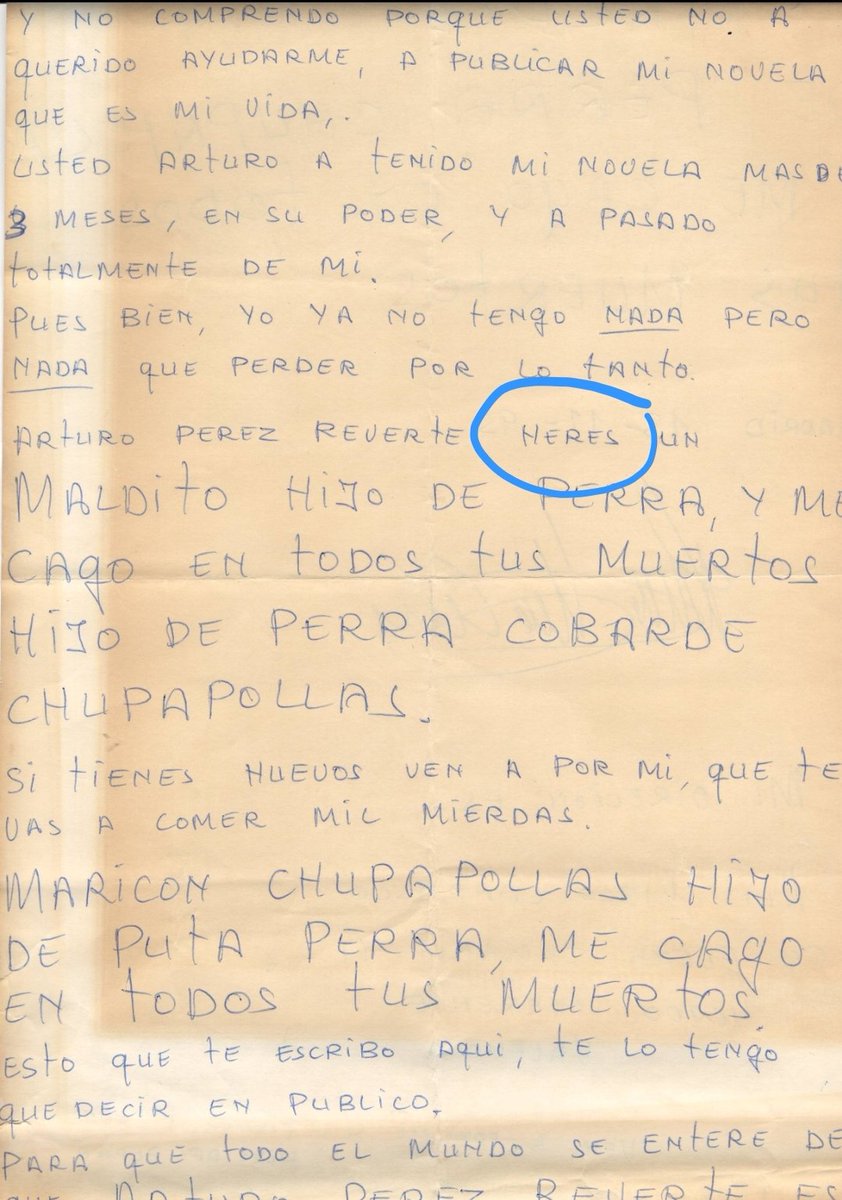 Y NO COMPRENDO PORQUE USTED NO A
QUERIDO AYUDARME, A PUBLICAR MI NOVELA
QUE ES MI VIDA,.
USTED ARTURO A TENIDO MI NOVELA MAS DE
3 MESES, EN SU PODER, Y A PASADO
TOTALMENTE DE MI.
PUES BIEN, YO YA NO TENGO NADA PERO
NADA QUE PERDER POR LO TANTO.
ARTURO PEREZ REVERTE HERES UN
MALDITO HIJO DE PERRA, Y ME
CAGO EN TODOS TUS MUERTOS
HIJO DE PERRA COBARDE
CHUPAPOLLAS.
SI TIENES HUEVOS VEN A POR MI, QUE TE
VAS A COMER MIL MIERDAS.
MARICON CHUPAPOLLAS HIJO
DE PUTA PERRA, ME CAGO
EN TODOS TUS MUERTOS.
ESTO QUE TE ESCRIBO AQUI, TE LO TENGO
QUE DECIR EN PUBLICO.
PARA QUE TODO EL MUNDO SE ENTERE DE
QUE ARTURO PEREZ REVERTE ES